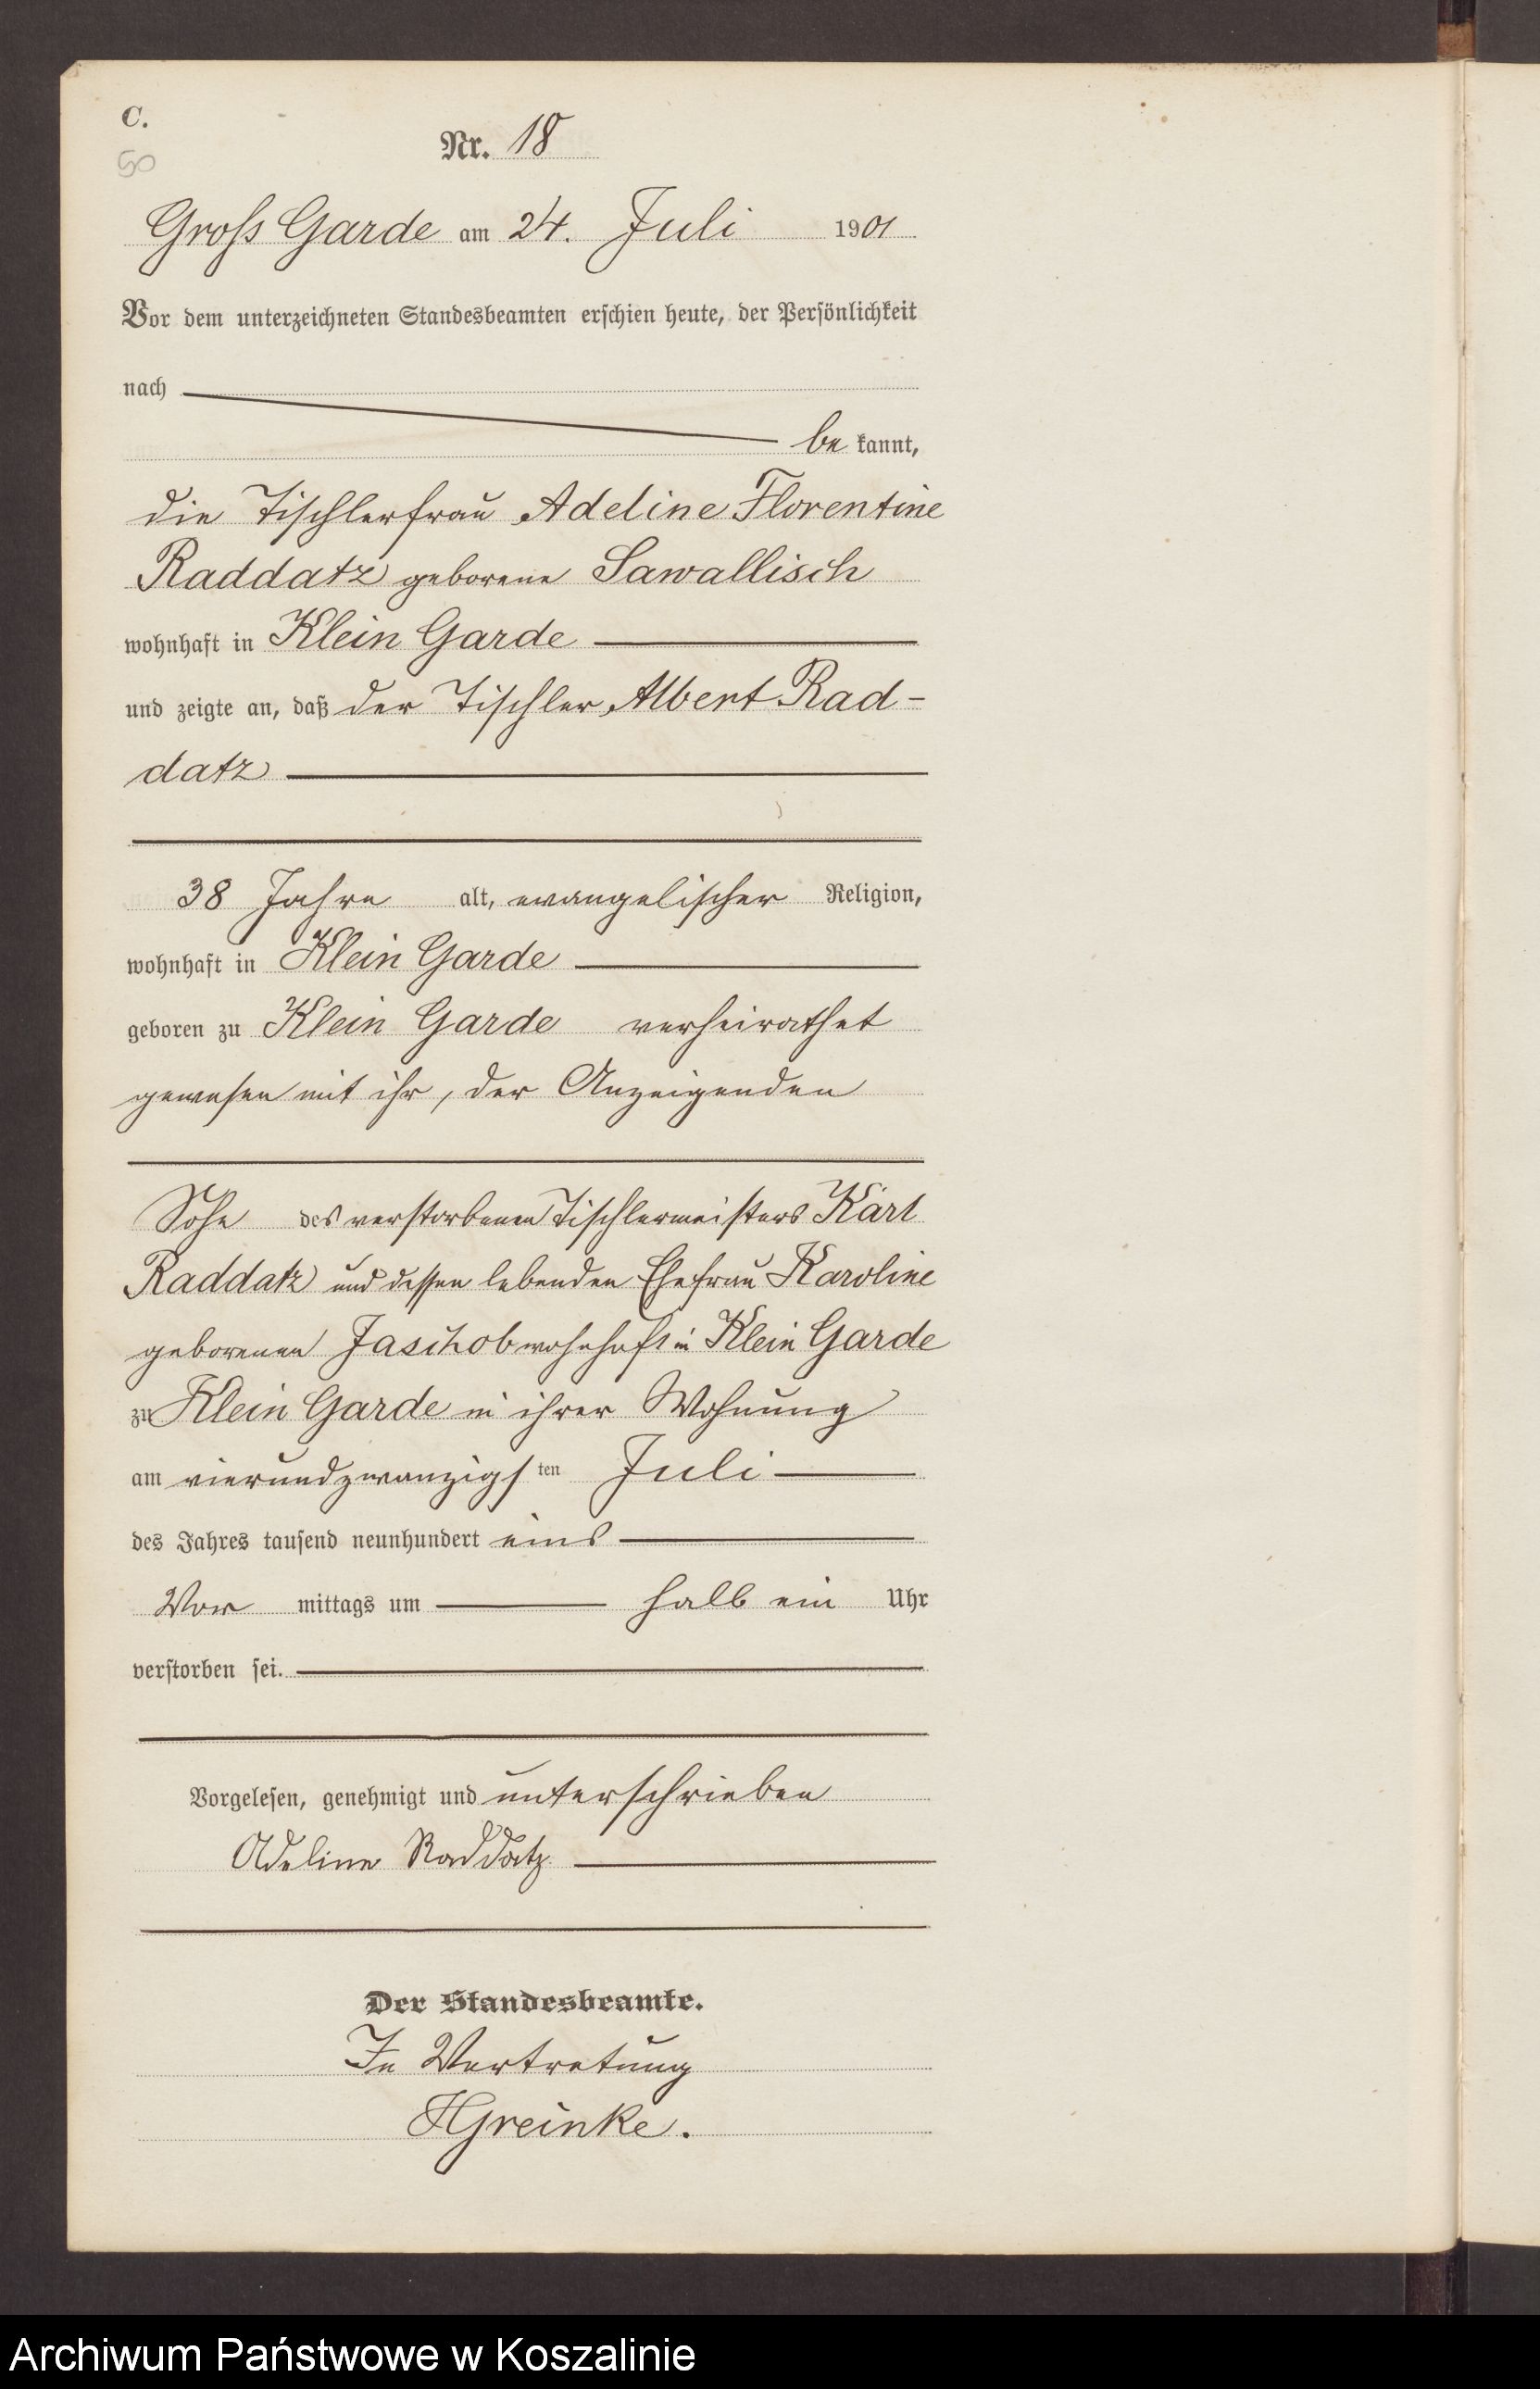 C.
50
Nr. 18
Gross Garde am 24. Juli 1901
Vor dem unterzeichneten Standesbeamten erschien heute, der Persönlichkeit
nach
be kannt,
die Tischlerfrau Adeline Florentine
Raddatz geborene Sawallisch
wohnhaft in Klein Garde
und zeigte an, daß der Tischler Albert Rad-
datz
38 Jahre alt, evangelischer Religion,
wohnhaft in Klein Garde
geboren zu Klein Garde verheirathet
gewesen mit ihr, der Anzeigenden
Sohn des verstorbenen Tischlermeisters Karl
Raddatz und dessen lebenden Ehefrau Karoline
geborenen Jaschob wohnhaft in Klein Garde
zu Klein Garde in ihrer Wohnung
am vierundzwanzigsten Juli
des Jahres tausend neunhundert eins
Vor mittags um halb ein Uhr
verstorben sei.
Vorgelesen, genehmigt und unterschrieben
Adeline Raddatz
Der Standesbeamte.
In Vertretung
HGreinke.
Archiwum Państwowe w Koszalinie